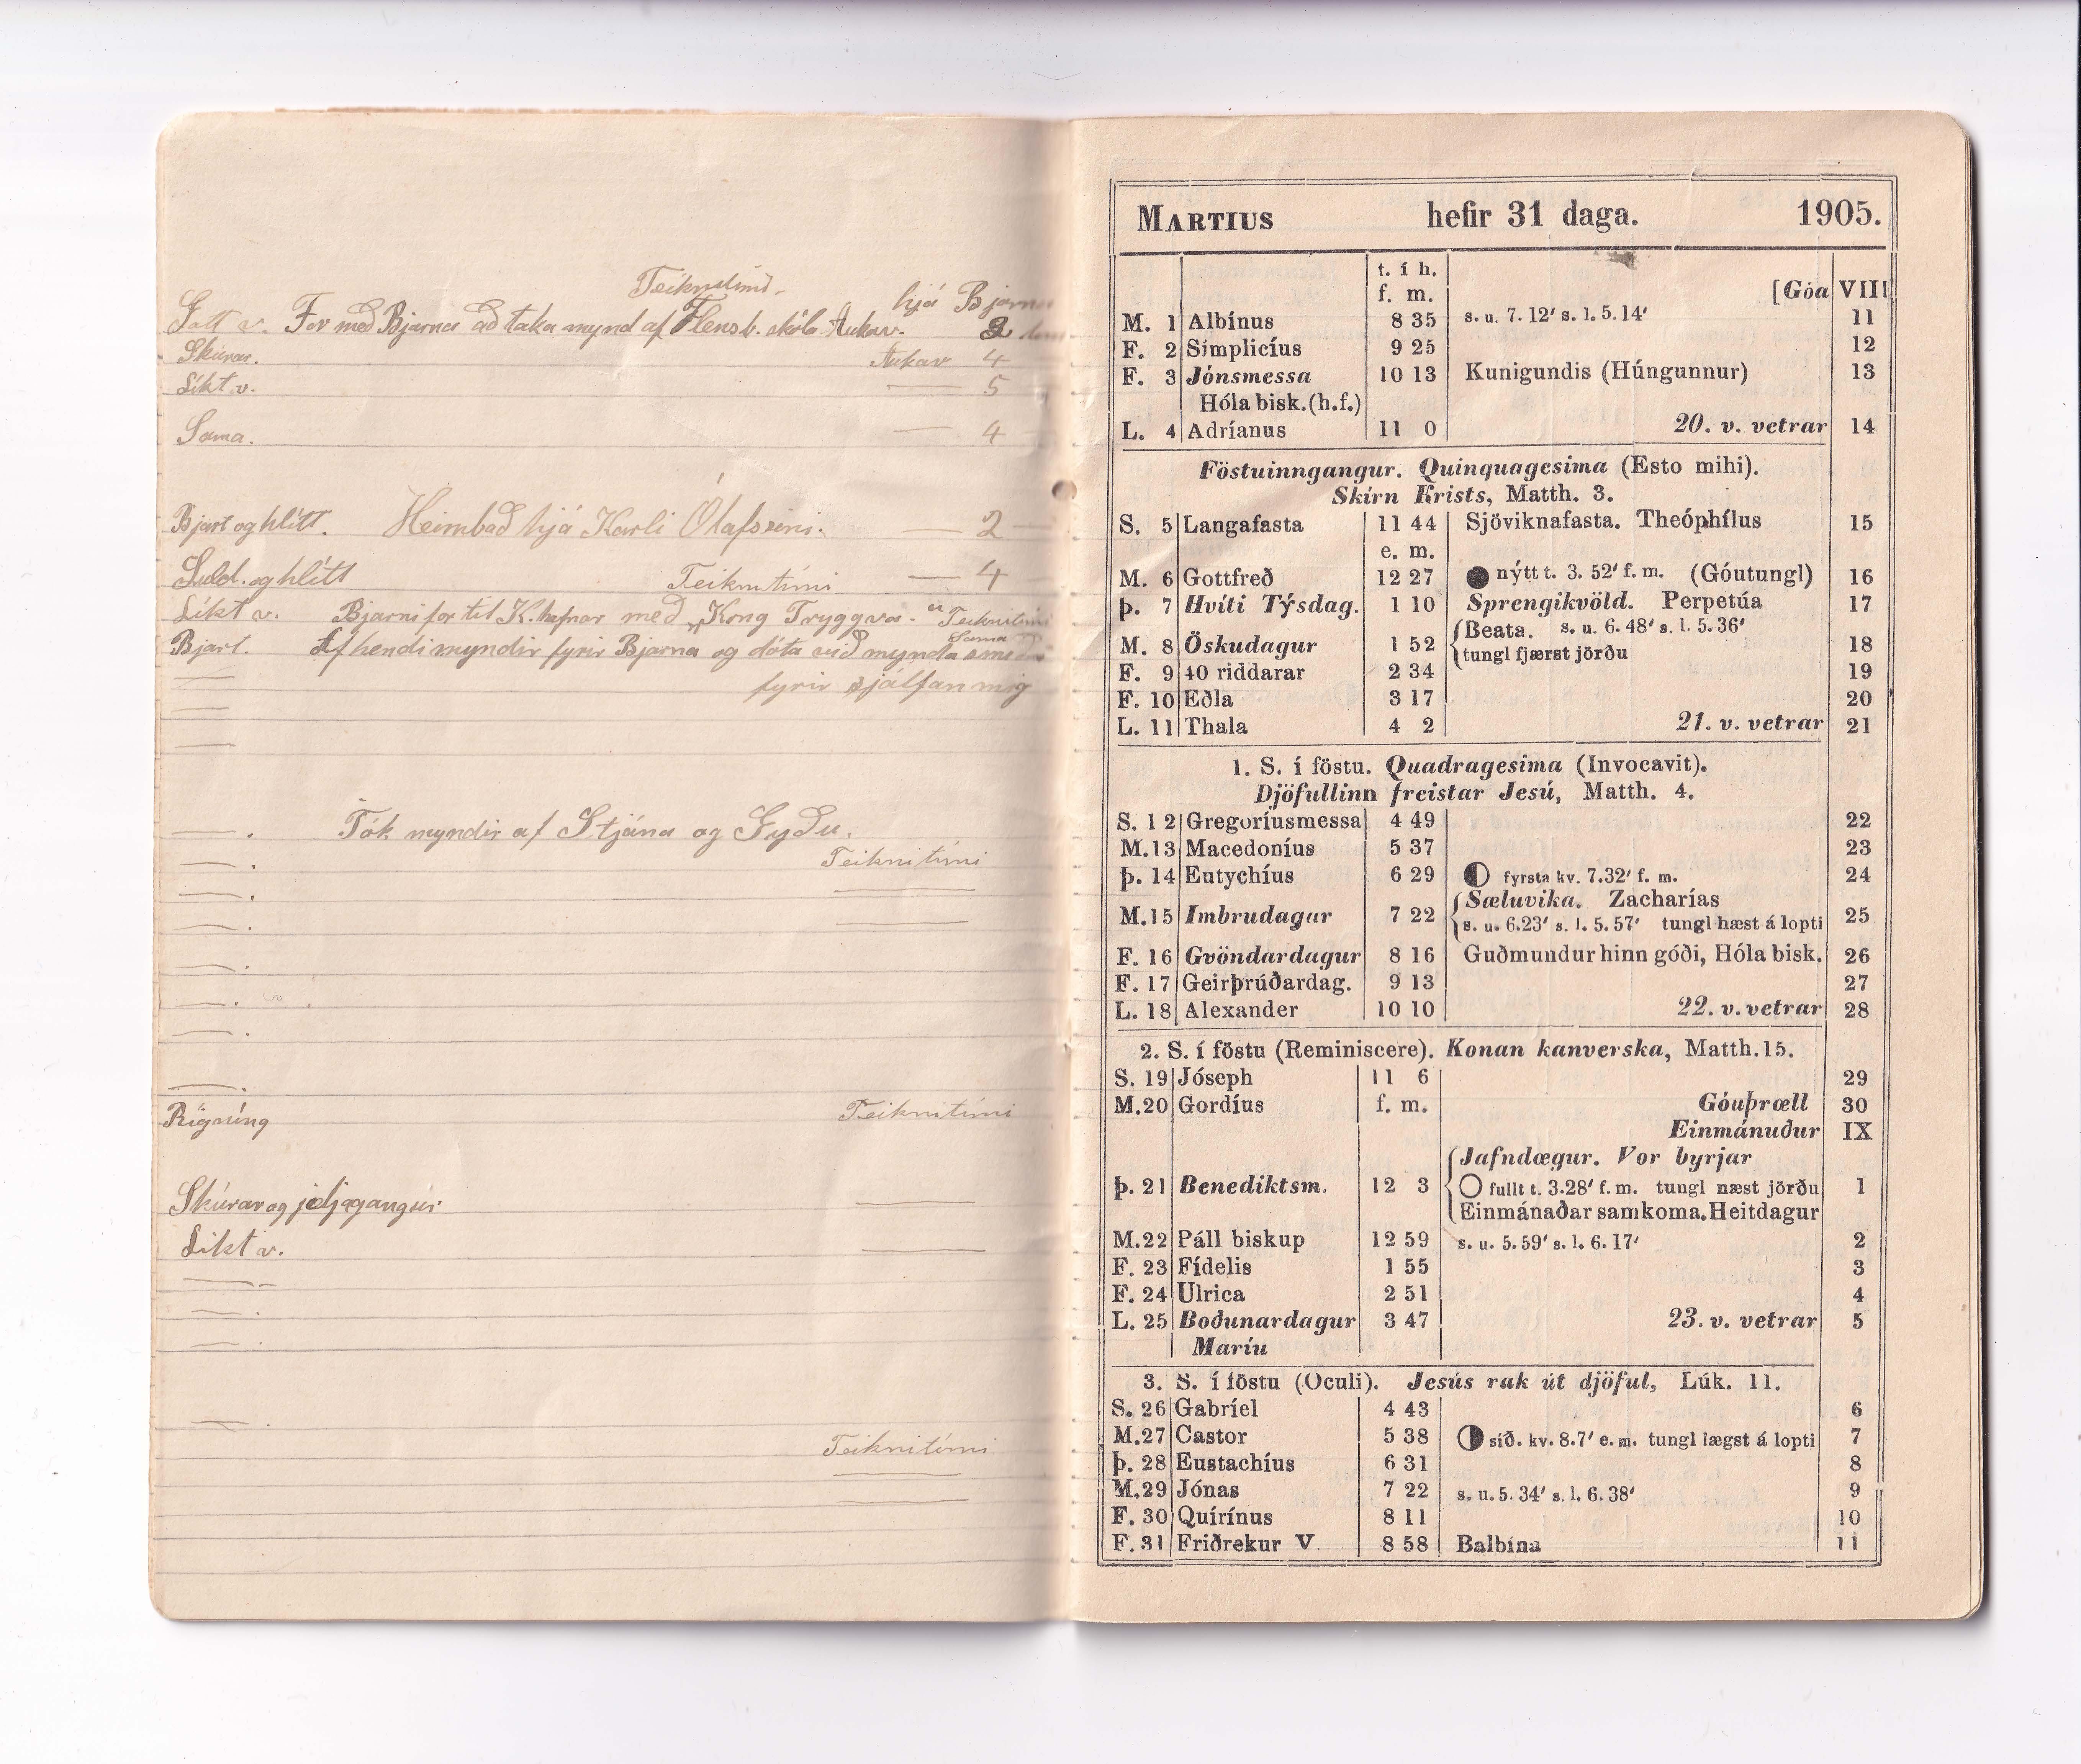 Teiknitími.
hjá Bjarna
Gott v. Fór með Bjarna að taka mynd af Flensb. skóla Aukav. 3
Skúrar. Aukav 4
Líkt v. — 5
Sama. — 4
Bjart og hlítt. Heimboð hjá Karli Ólafssini. — 2
Suld. og hlítt Teiknitími — 4
Líkt v. Bjarni for til K.hafnar með „Kong Tryggva." Teiknitími
Sama
Bjart. Afhendi myndir fyrir Bjarna og dóta við mynda smíði
— fyrir sjálfan mig
—
—
— . Tók myndir af Stjána og Gyðu.
— . Teiknitími
— . —
— . —
— .
— .
— .
— .
Rigning Teiknitími
Skúrar og jeljagangur —
Líkt v. —
—
— .
— .
— .
Teiknitími
—
—
MARTIUS hefir 31 daga. 1905.
t. í h.
f. m. [Góa VIII
M. 1 Albínus 8 35 s. u. 7. 12′ s. l. 5. 14′ 11
F. 2 Simplicíus 9 25 12
F. 3 Jónsmessa 10 13 Kunigundis (Húngunnur) 13
Hóla bisk. (h.f.)
L. 4 Adríanus 11 0 20. v. vetrar 14
Föstuinngangur. Quinquagesima (Esto mihi).
Skírn Krists, Matth. 3.
S. 5 Langafasta 11 44 Sjöviknafasta. Theóphílus 15
e. m.
M. 6 Gottfreð 12 27 ● nýtt t. 3. 52′ f. m. (Góutungl) 16
Þ. 7 Hvíti Týsdag. 1 10 Sprengikvöld. Perpetúa 17
Beata. s. u. 6. 48′ s. l. 5. 36′
M. 8 Öskudagur 1 52 tungl fjærst jörðu 18
F. 9 40 riddarar 2 34 19
F. 10 Eðla 3 17 20
L. 11 Thala 4 2 21. v. vetrar 21
1. S. í föstu. Quadragesima (Invocavit).
Djöfullinn freistar Jesú, Matth. 4.
S. 12 Gregoríusmessa 4 49 22
M. 13 Macedoníus 5 37 23
Þ. 14 Eutychíus 6 29 ◐ fyrsta kv. 7.32′ f. m. 24
Sæluvika. Zacharías
M. 15 Imbrudagar 7 22 s. u. 6.23′ s. l. 5. 57′ tungl hæst á lopti 25
F. 16 Gvöndardagur 8 16 Guðmundur hinn góði, Hóla bisk. 26
F. 17 Geirþrúðardag. 9 13 27
L. 18 Alexander 10 10 22. v. vetrar 28
2. S. í föstu (Reminiscere). Konan kanverska, Matth. 15.
S. 19 Jóseph 11 6 29
M. 20 Gordíus f. m. Góuþræll 30
Einmánuður IX
Jafndægur. Vor byrjar
Þ. 21 Benediktsm. 12 3 ○ fullt t. 3.28′ f. m. tungl næst jörðu 1
Einmánaðar samkoma. Heitdagur
M. 22 Páll biskup 12 59 s. u. 5. 59′ s. l. 6. 17′ 2
F. 23 Fídelis 1 55 3
F. 24 Ulrica 2 51 4
L. 25 Boðunardagur 3 47 23. v. vetrar 5
Maríu
3. S. í föstu (Oculi). Jesús rak út djöful, Lúk. 11.
S. 26 Gabríel 4 43 6
M. 27 Castor 5 38 ◑ síð. kv. 8.7′ e. m. tungl lægst á lopti 7
Þ. 28 Eustachíus 6 31 8
M. 29 Jónas 7 22 s. u. 5. 34′ s. l. 6. 38′ 9
F. 30 Quírínus 8 11 10
F. 31 Friðrekur V. 8 58 Balbína 11